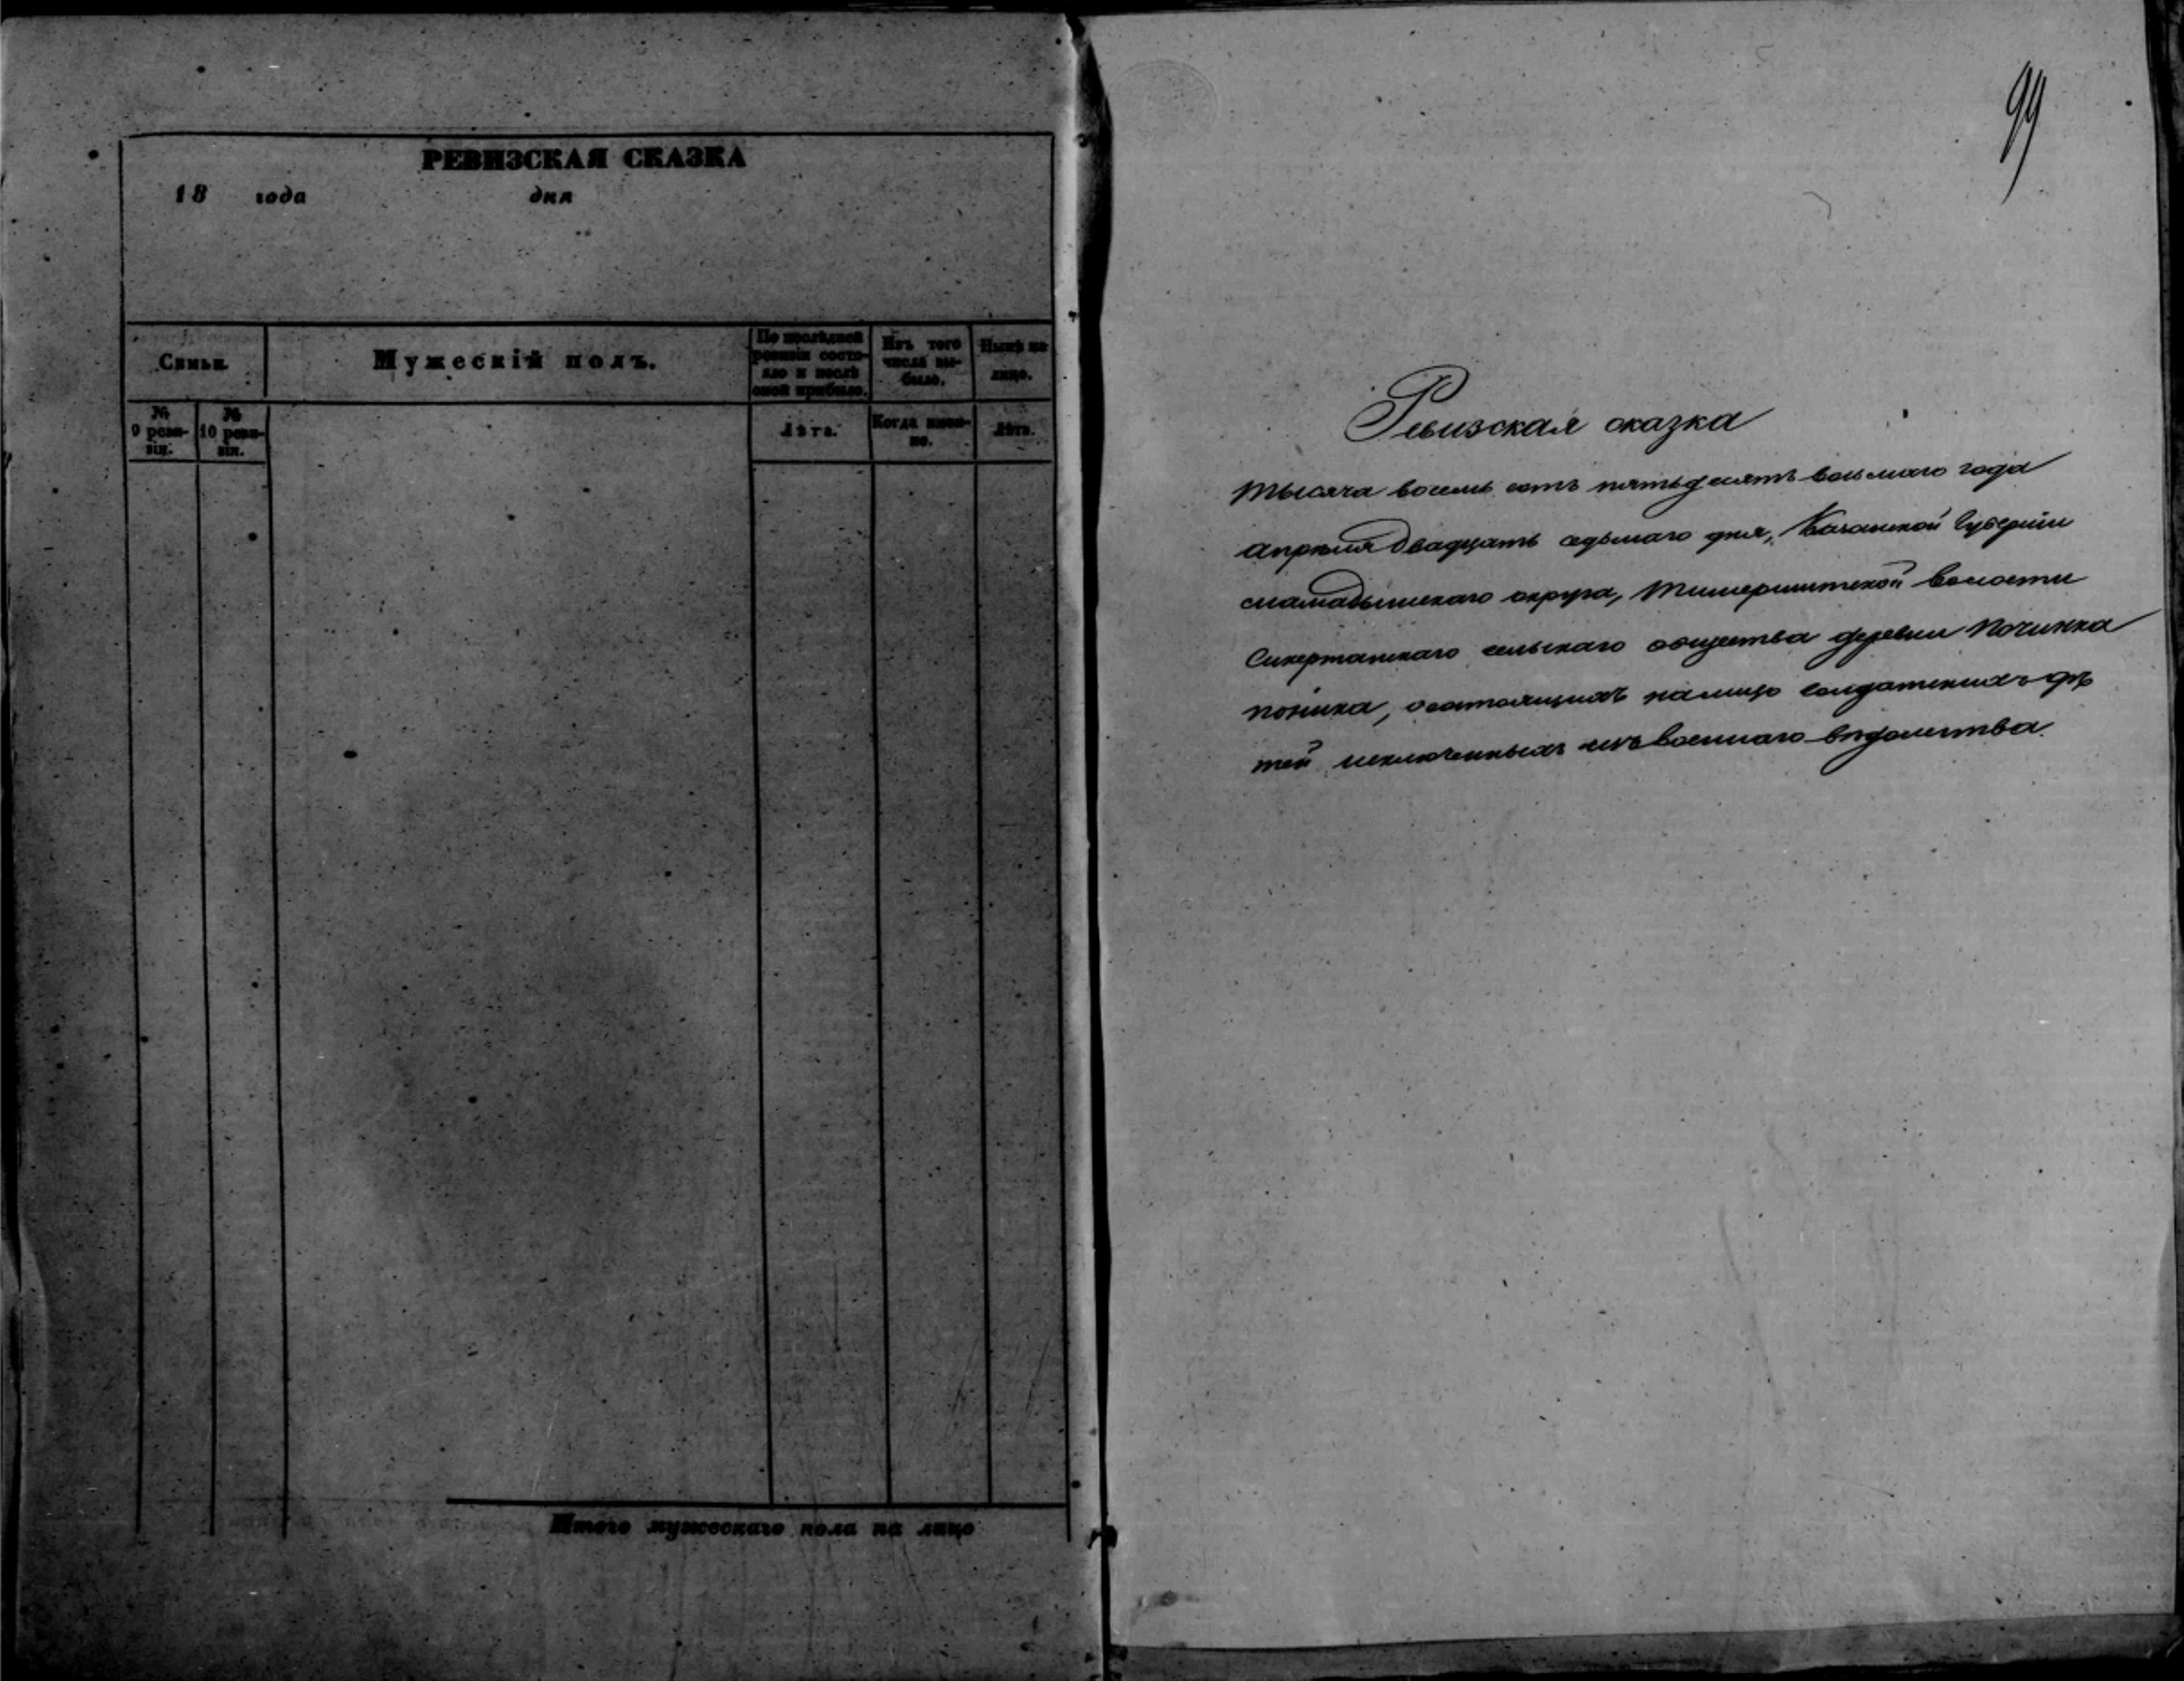 РЕВИЗСКАЯ СКАЗКА
18 года дня
Семьи.
Мужескій полъ.
По послѣдней ревизіи состояло и послѣ оной прибыло.
Изъ того числа выбыло.
Нынѣ на лицо.
№ 9 ревизіи.
№ 10 ревизіи.
Лѣта.
Когда именно.
Лѣта.
Итого мужескаго пола на лицо
99
Ревизская сказка
тысяча восемь сотъ пятьдесятъ восьмаго года
апрѣля двадцать седьмаго дня, Казанской Губерніи
мамадышскаго округа, волости
сельскаго общества деревни Починка
поника, состоящихъ налицо солдатскихъ дѣ
тей исключенныхъ изъ военнаго вѣдомства.